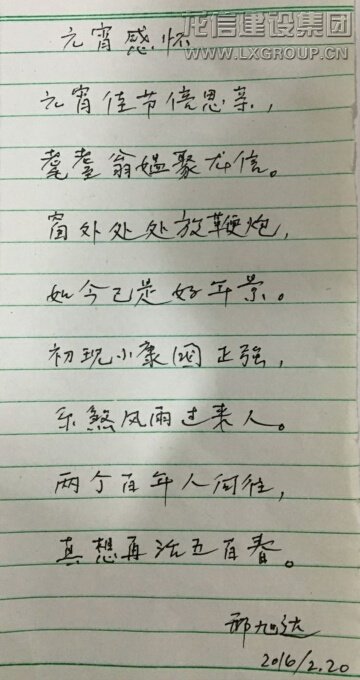 龙信建设集团
WWW.LXGROUP.CN
元宵感怀
元宵佳节倍思亲，
耄耋翁媪聚龙信。
窗外处处放鞭炮，
如今已是好年景。
初现小康国正强，
乐煞风雨过来人。
两个百年人向往，
真想再活五百春。
邢旭达
2016/2.20